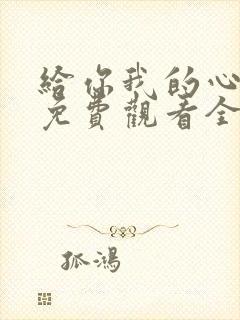 給你我的心
免費觀看全
孤鴻